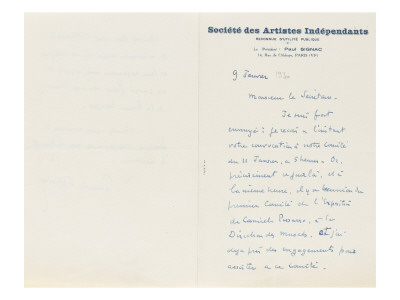 Société des Artistes Indépendants
RECONNUE D'UTILITÉ PUBLIQUE
Le Président : Paul SIGNAC
14, Rue de l'Abbaye, PARIS (VIe)
9 Janvier
Monsieur le Secrétaire.
Je suis fort
ennuyé : je reçois à l'instant
votre convocation à votre Comité
du 21 Janvier, à 5 heures. Or,
précisément ce jour là, et à
la même heure, il y a
premier Comité de l'
de Camille Pissarro, à la
Direction des Musées. et j'ai
déjà pris des engagements pour
assister à ce comité.